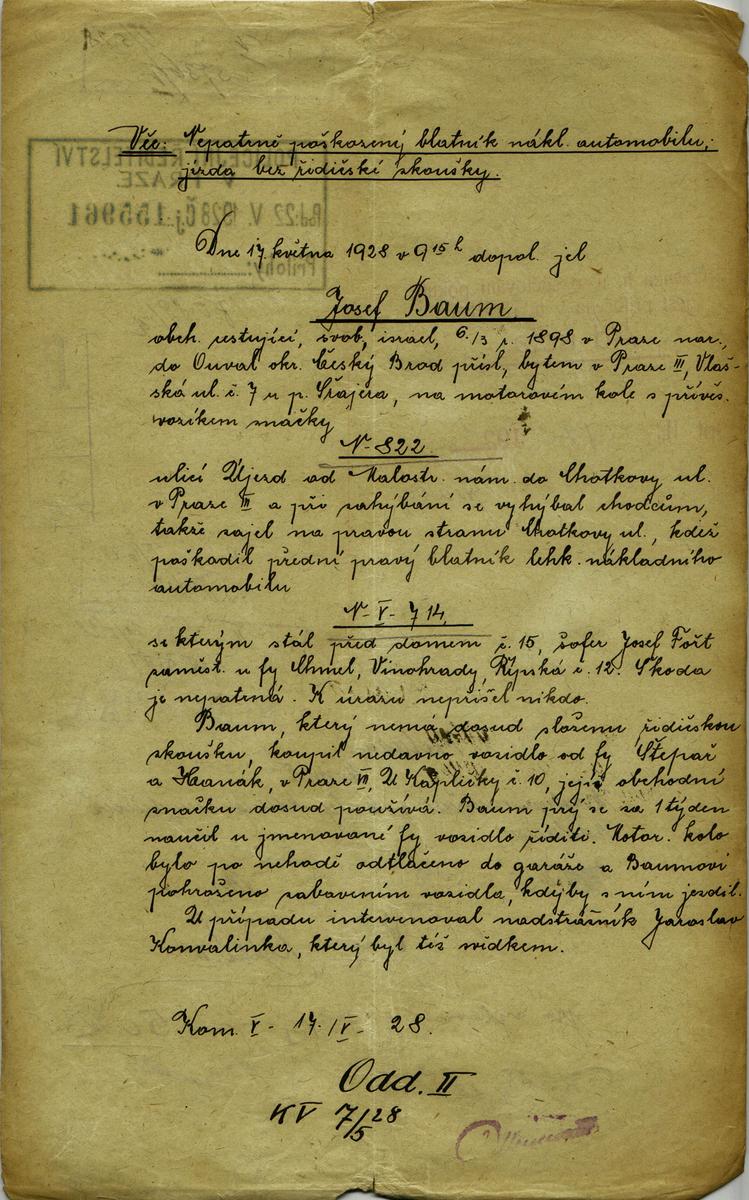 Věc: Nepatrně poškozený blatník nákl. automobilu;
jízda bez řidičské zkoušky.
Dne 17. května 1928 v 9 15 h dopol. jel
Josef Baum,
obch. cestující, svob., israel, 6./3 r. 1898 v Praze nar.,
do Ouval okr. Český Brod přísl., bytem v Praze III, Vlaš-
ská ul. č. 7 u p. Šrajera, na motorovém kole s přívěs.
vozíkem značky
N-822.
ulicí Újezd od Malostr. nám. do Chotkovy ul.
v Praze III a při zahýbání se vyhýbal chodcům,
takže zajel na pravou stranu Chotkovy ul., kdež
poškodil přední pravý blatník lehk. nákladního
automobilu
N-V-714,
se kterým stál před domem č. 15, šofer Josef Fořt
zaměst. u fy Chmel, Vinohrady, Řipská č. 12. Škoda
je nepatrná. K úrazu nepřišel nikdo.
Baum, který nemá dosud složenu řidičskou
zkoušku, koupil nedavno vozidlo od fy Štepař
a Hanák, v Praze VII, U Kapličky č. 10, jejíž obchodní
značku dosud používá. Baum prý se za 1 týden
naučil u jmenované fy vozidlo říditi. Motor. kolo
bylo po nehodě odtlačeno do garáže a Baumovi
pohroženo zabavením vozidla, kdyby s ním jezdil.
U případu intervenoval nadstrážník Jaroslav
Konvalinka, který byl též svědkem.
Kom. V - 17./V - 28.
Odd. II
KV 7/5 28